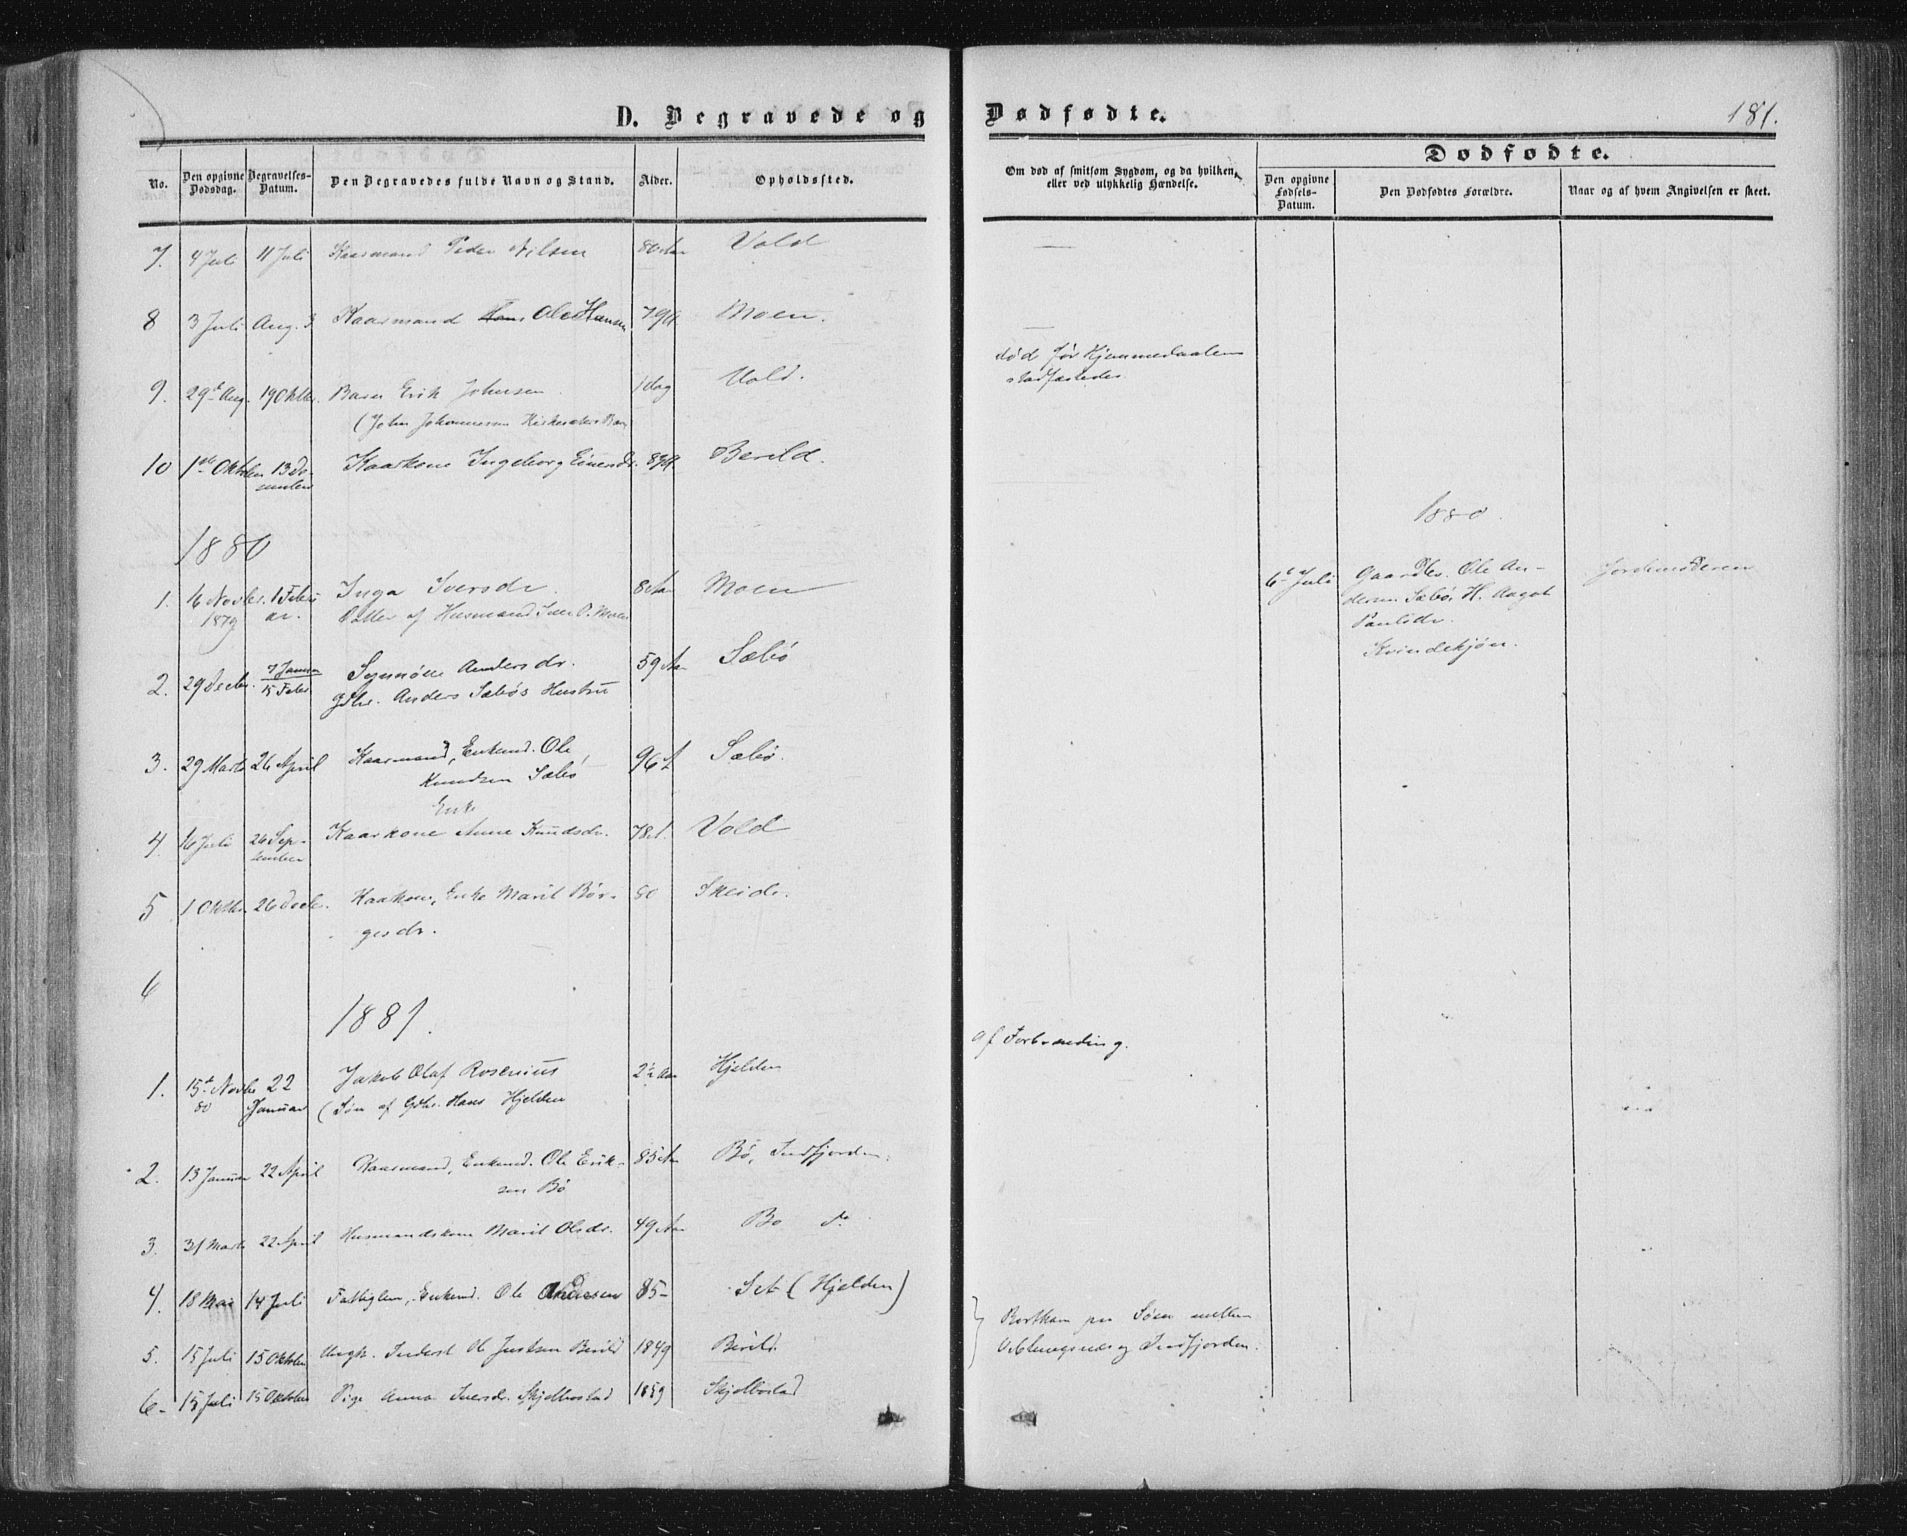 D. Begravede og Dødfødte.
181.
No.
Den opgivne Dødsdag.
Begravelses-Datum.
Den Begravedes fulde Navn og Stand.
Alder.
Opholdssted.
Om død af smitsom Sygdom, og da hvilken, eller ved ulykkelig Hændelse.
Dødfødte.
Den opgivne Fødsels-Datum.
Den Dødfødtes Forældre.
Naar og af hvem Angivelsen er skeet.
7. 4 Juli 11 Juli Kaarmand Peder Nilsen 80 Aar Vold
8 3 Juli Aug. 3 Kaarmand Hans Ole Hansen 79 A Moen.
død før Hjemmedaaben
stadfæstedes.
9. 29de Aug. 19 Oktbr. Barn Erik Johnsen 1 dag Vold.
(John Johannessen Barn
10 1ste Oktober 13 De-
cember Kaarkone Ingeborg Einersdr. Berild.
1880
1880.
1. 16 Novbr. 1 Febru
1879 ar. Inga Iversdr. 8 Aar Moen
Datter af Husmand Iver O. Moen
6te Juli Gaardbr. Ole An-
dersen Sæbø, H. Aagot
Paulsdr.
Kvindekjøn.
Jordemoderen
2. 29 Decbr. 7 Januar
15 Febr. Synnøve Andersdr. 59 Aar Sæbø
Gbr. Anders Sæbøs Hustru
3. 29 Marts 26 April Kaarmand, Enkemd. Ole 96 A Sæbø.
Knudsen Sæbø
Enke
4. 16 Juli 26 Sep-
tember Kaarkone Anne Knudsdr. 78 A. Vold
5 1 Oktbr. 26 Decbr. Kaarkone, Enke Marit Bør- 80 Skeide.
gesdr.
6
1881.
af Forbrænding.
1. 15de Novbr 22
80 Januar Jakob Olaf Rosenius 2½ Aar Hjelden
(Søn af Gbr. Hans Hjelden
2. 13 Januar 22 April Kaarmand, Enkemd. Ole Erik- 85 Aar Bø, Indfjorden.
sen Bø
3. 31 Marts 22 April Husmandskone Marit Olsdr. 49 Aar Bø do
4. 18 Mai 14 Juli Fattiglem, Enkemd. Ole Andersen 85- Set (Hjelden)
5. 15 Juli 15 Oktober Ungk. Inderst Ole Justsen Berild 1849 Berild.
6. 15 Juli 15 Oktober Pige Anna Iversdr. Skjelbostad 1859 Skjelbostad
Bortkom paa Søen mellem
Veblungsnes og Indfjorden.